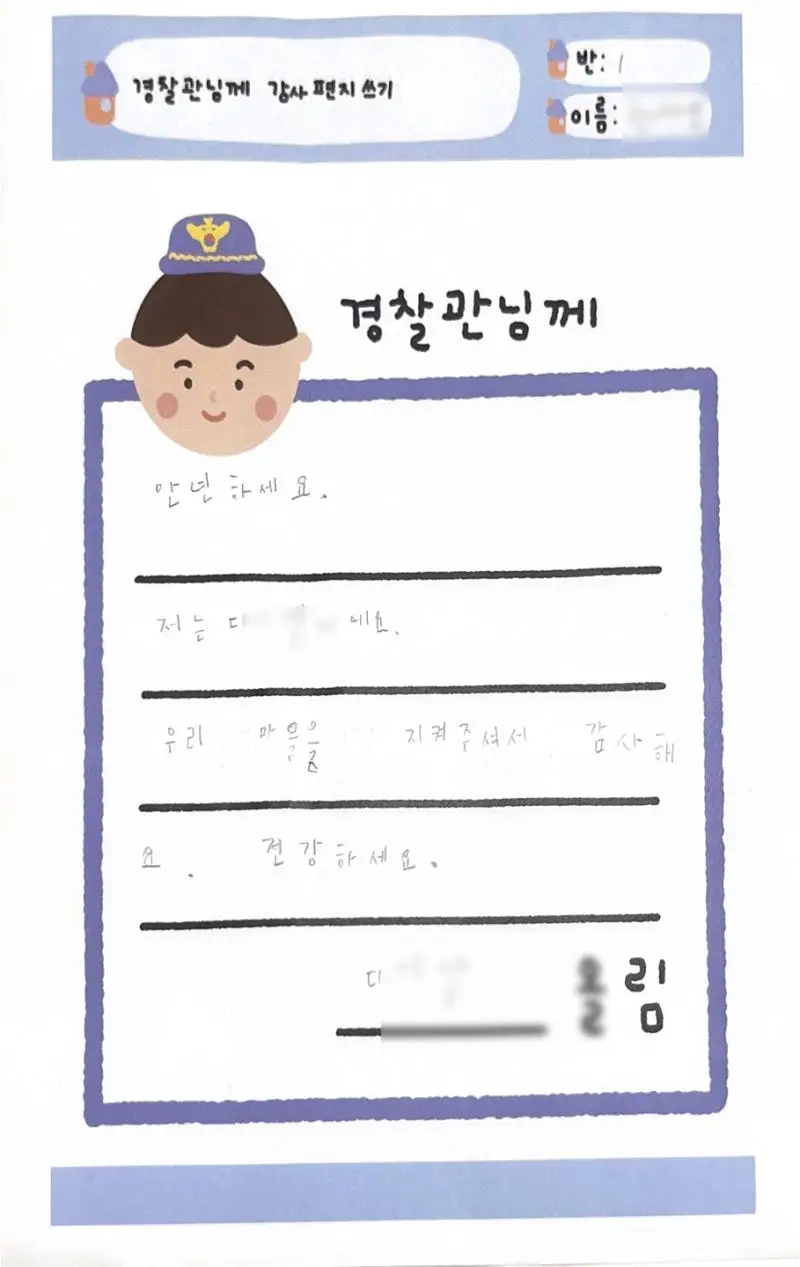 경찰관님께 감사 편지 쓰기
반: 1
이름:
경찰관님께
안년하세요.
저는 다 에요.
우리 마을을 지켜주셔서 감사해
요. 건강하세요.
다
올림